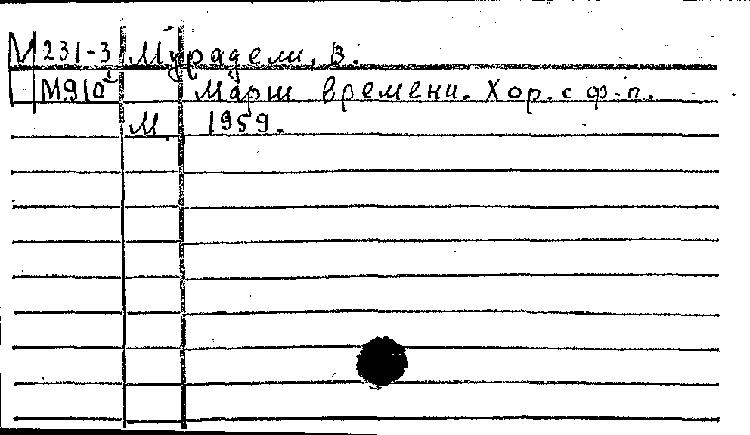 М 231-3 Мурадели, В.
М910 Марш времени. Хор. с ф-п.
М. 1959.